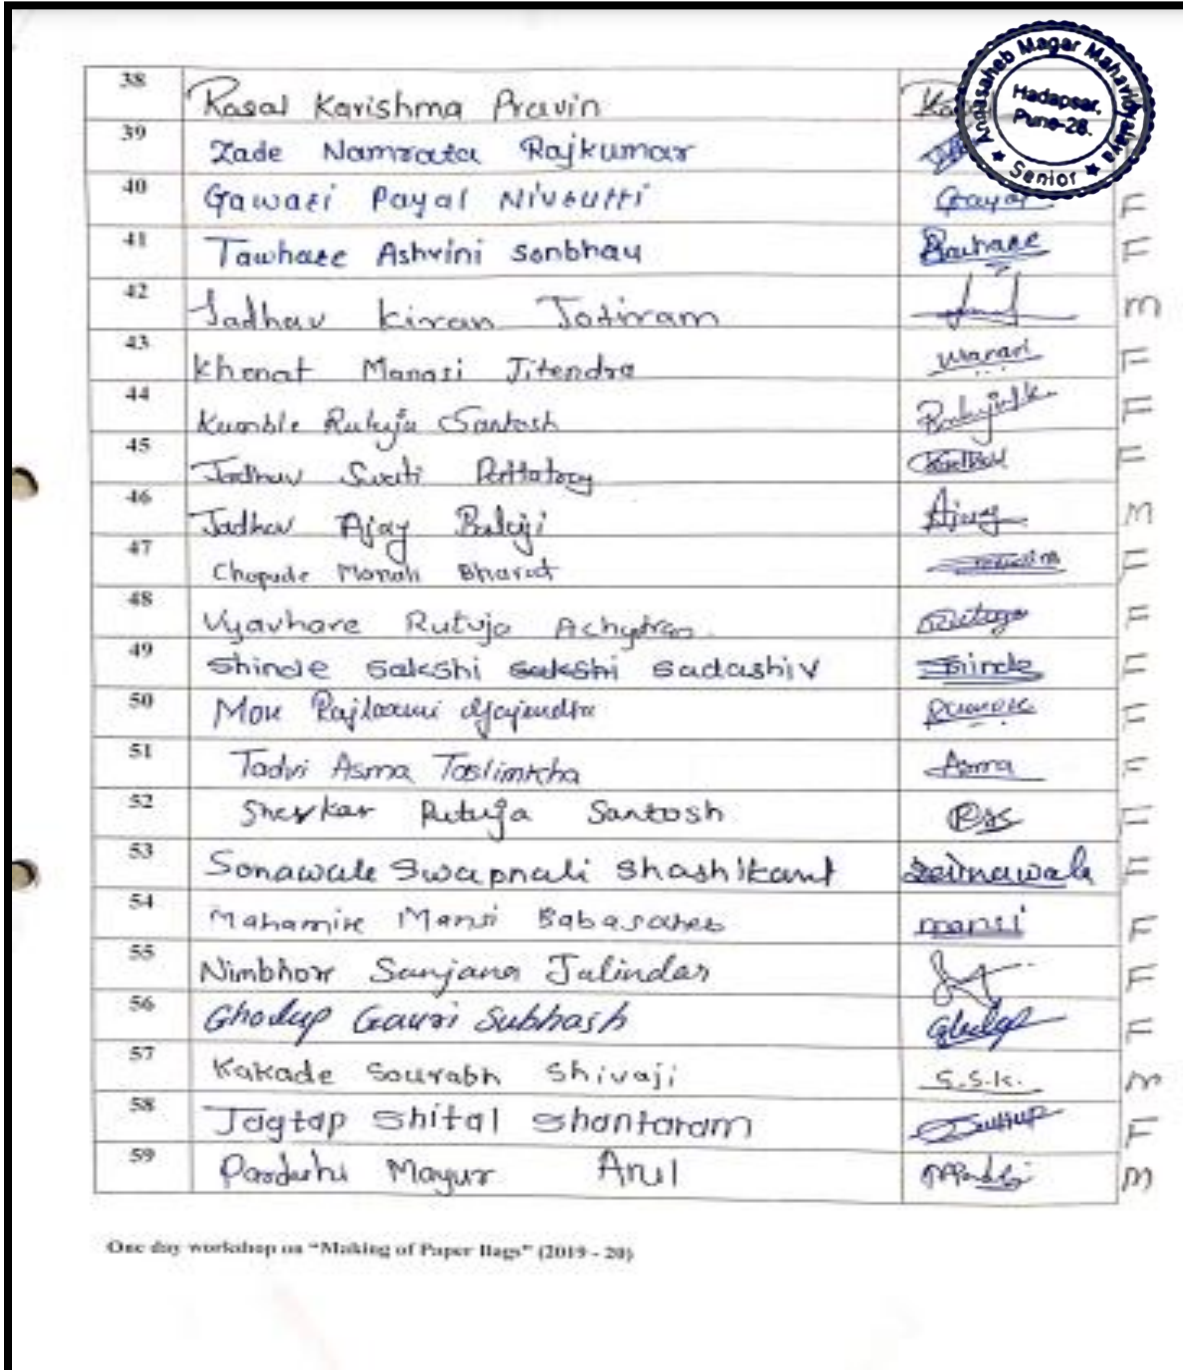 Annasaheb Magar Mahavidyalaya
Hadapsar,
Pune-28.
★ Senior ★
38 Rasal Karishma Pravin
39 Zade Namrata Rajkumar
40 Gawari Payal Nivrutti Gpayal F
41 Tawhare Ashvini Sonbhau F
42 Jadhav Kiran Jotiram M
43 Khenat Manasi Jitendra Manasi F
44 Kumble Rutuja Santosh Rutuja.k. F
45 Jadhav Swati F
46 Jadhav Ajay Balaji Ajay M
47 Chopade Manali Bharat F
48 Vyavhare Rutuja Rutuja F
49 Shinde Sakshi Sakshi Sadashiv Shinde F
50 More Rajlaxmi Gajendra F
51 Tadvi Asma Taslimkha Asma F
52 Sherkar Rutuja Santosh RSS F
53 Sonawale Swapnali Shashikant F
54 Mahamire Mansi Babasaheb mansi F
55 Nimbhore Sanjana Jalindar F
56 Gauri Subhash F
57 Kakade Sourabh Shivaji S.S.K. M
58 Jagtap Shital Shantaram F
59 Mayur Anil M
One day workshop on “Making of Paper Bags” (2019 - 20)